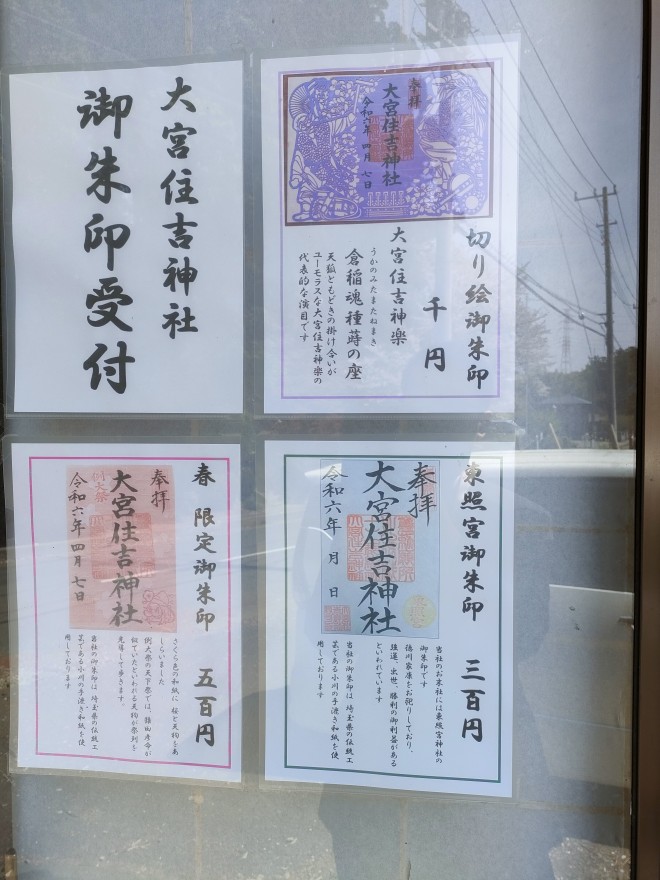 大宮住吉神社
御朱印受付
切り絵御朱印
千円
奉拝
大宮住吉神社
令和六年 四月 七日
大宮住吉神楽
うかのみたまたねまき
倉稲魂種蒔の座
天狐ともどきの掛け合いが
ユーモラスな大宮住吉神楽の
代表的な演目です
春 限定御朱印 五百円
奉拝
大宮住吉神社
例大祭
令和六年 四月 七日
さくら色の和紙に 桜と天狗をあ
しらいました
例大祭の天下祭では、猿田彦命が
似ていたといわれる天狗が祭列を
先導して歩きます。
当社の御朱印は、埼玉県の伝統工
芸である小川の手漉き和紙を使
用しております
東照宮御朱印 三百円
奉拝
大宮住吉神社
令和六年 月 日
当社のお本社には東照宮神社の
御朱印です
徳川家康をお祀りしており、
強運、出世、勝利の御利益がある
といわれています
当社の御朱印は、埼玉県の伝統工
芸である小川の手漉き和紙を使
用しております